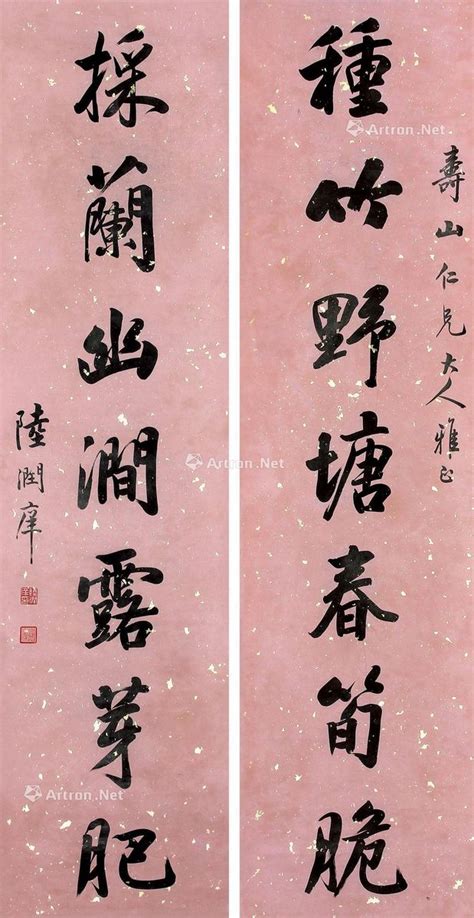 壽山仁兄大人雅正
種竹野塘春筍脆
採蘭幽澗露芽肥
陸潤庠
Artron.Net
Artron.Net
Artron.Net
Artron.Net